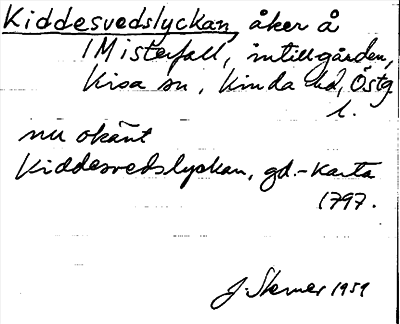 Kiddesvedslyckan, åker å
1 Misterfall, intill gården,
Kisa sn, Kinda hd, Östg.
l.
nu okänt
Kiddesvedslyckan, gd.-Karta
1797.
J. Skener 1959